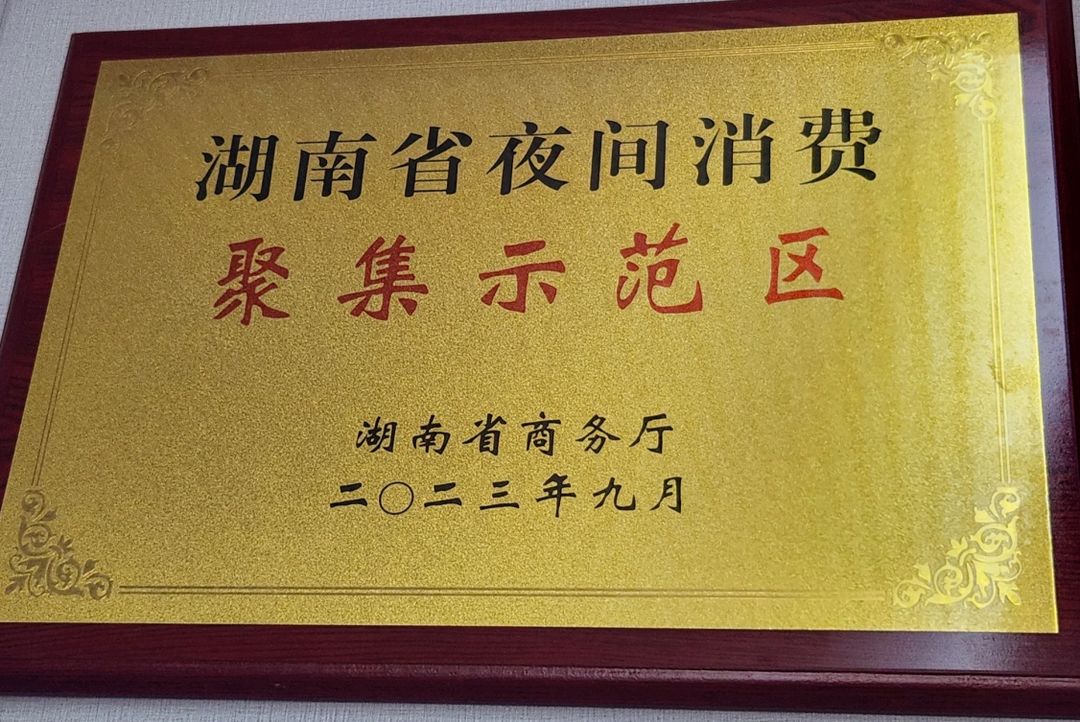 湖南省夜间消费
聚集示范区
湖南省商务厅
二〇二三年九月